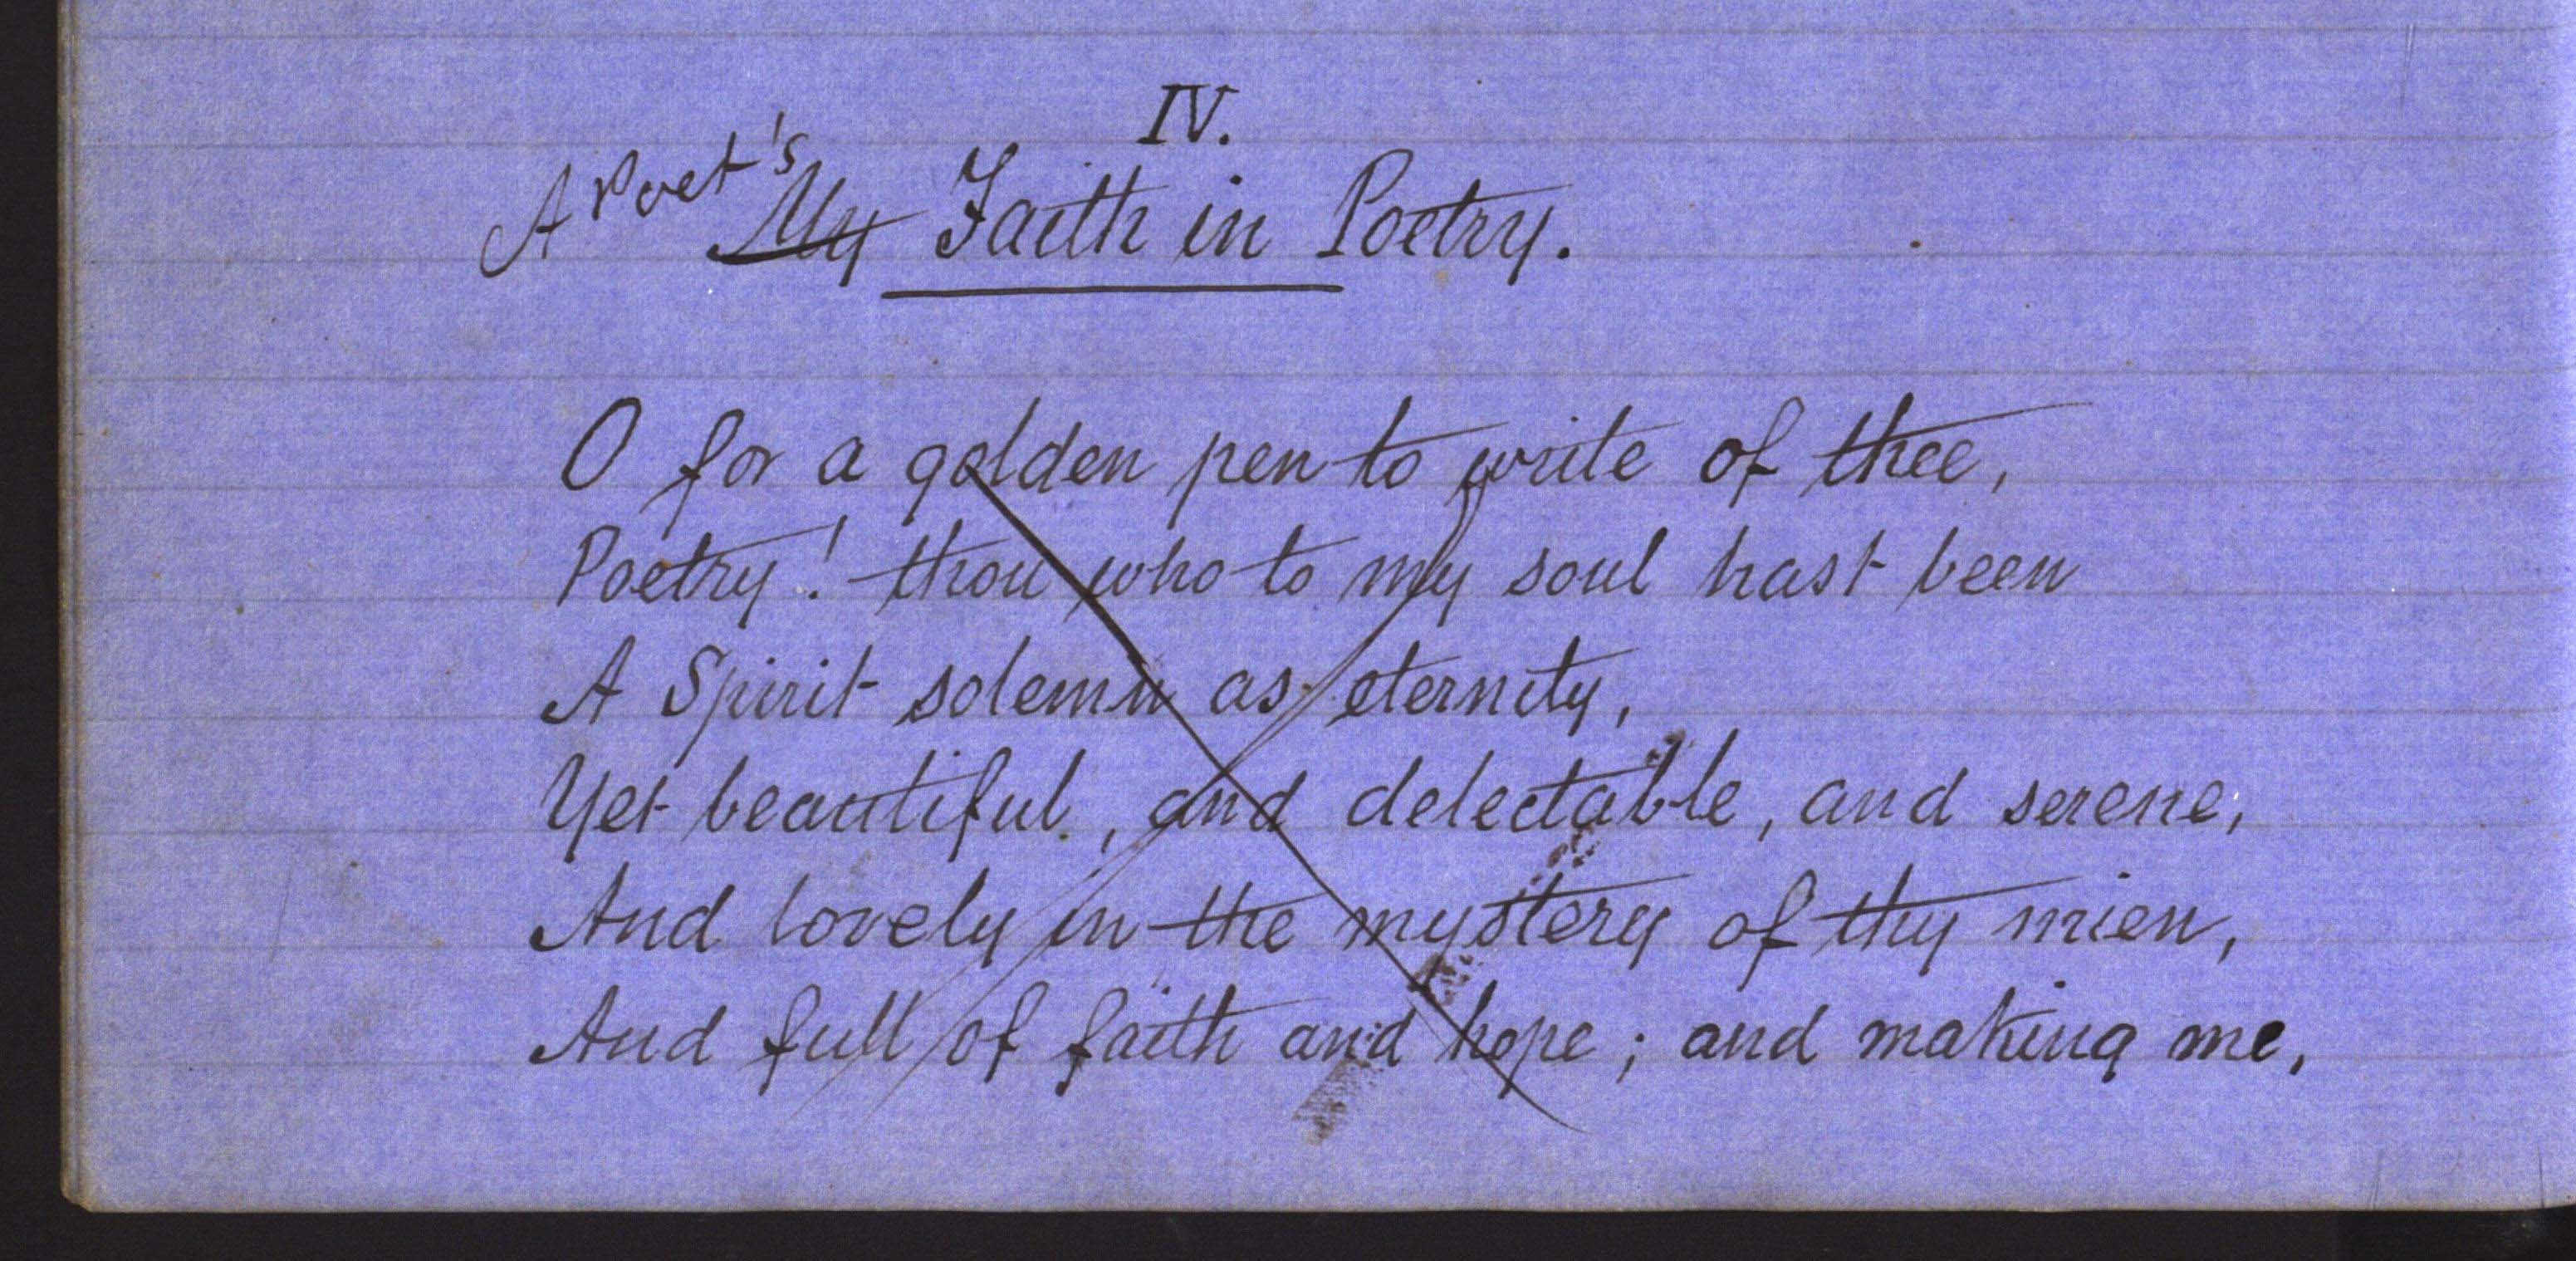 IV.
A Poet's My Faith in Poetry.
O for a golden pen to write of thee,
Poetry! thou who to my soul hast been
A Spirit solemn as eternity,
Yet beautiful, and delectable, and serene,
And lovely in the mystery of thy mien,
And full of faith and hope; and making me,